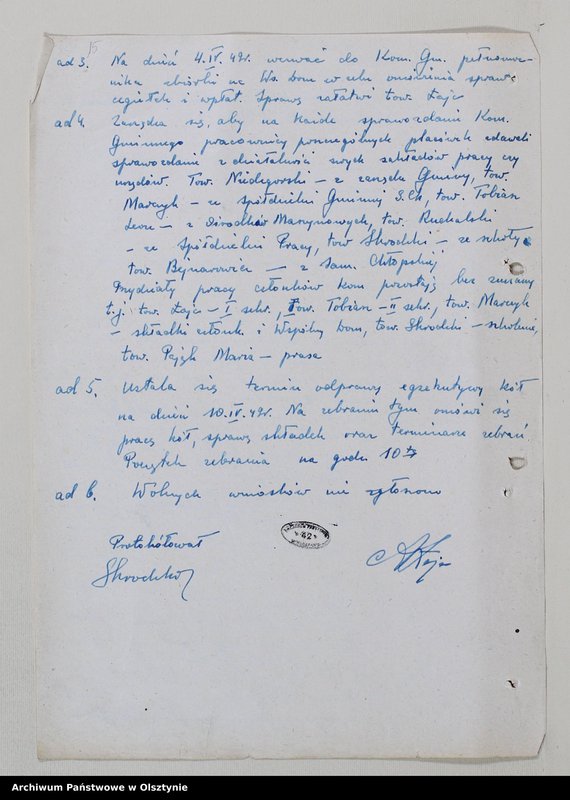 ad 3. Na dzień 4.IV.49r. wezwać do Kom. Gm. pełnomoc-
nika zbiórki na Ws. Dom w celu omówienia spraw
cegiełek i wpłat. Sprawę załatwi tow. Łajc
ad 4. Zarządza się, aby na każde sprawozdanie Kom.
Gminnego pracownicy poszczególnych placówek zdawali
sprawozdanie z działalności swych zakładów pracy czy
urzędów. Tow. Niedźgorski – z zarządu Gminy, tow.
Marczyk – ze spółdzielni Gminnej S.Ch, tow. Tobian
Leon – z Ośrodków Maszynowych, tow. Ruchalski
– ze Spółdzielni Pracy, tow Skrodzki – ze szkoły
tow. Bejnarowicz – z Sam. Chłopskiej
Przydziały pracy członków kom pozostają bez zmiany
t.j. tow. Łajc – I sekr., tow. Tobian – II sekr., tow. Marczyk
– składki członk. i Wspólny Dom, tow. Skrodzki – szkolenie,
tow. Maria – prasa
ad 5. Ustala się termin odprawy egzekutywy kół
na dzień 10.IV.49r. Na zebraniu tym omówi się
pracę kół, sprawę składek oraz terminarze zebrań
Początek zebrania na godz. 10tą
ad 6. Wolnych wniosków nie zgłoszono
Protokółował
Skrodzki
42
Archiwum Państwowe w Olsztynie